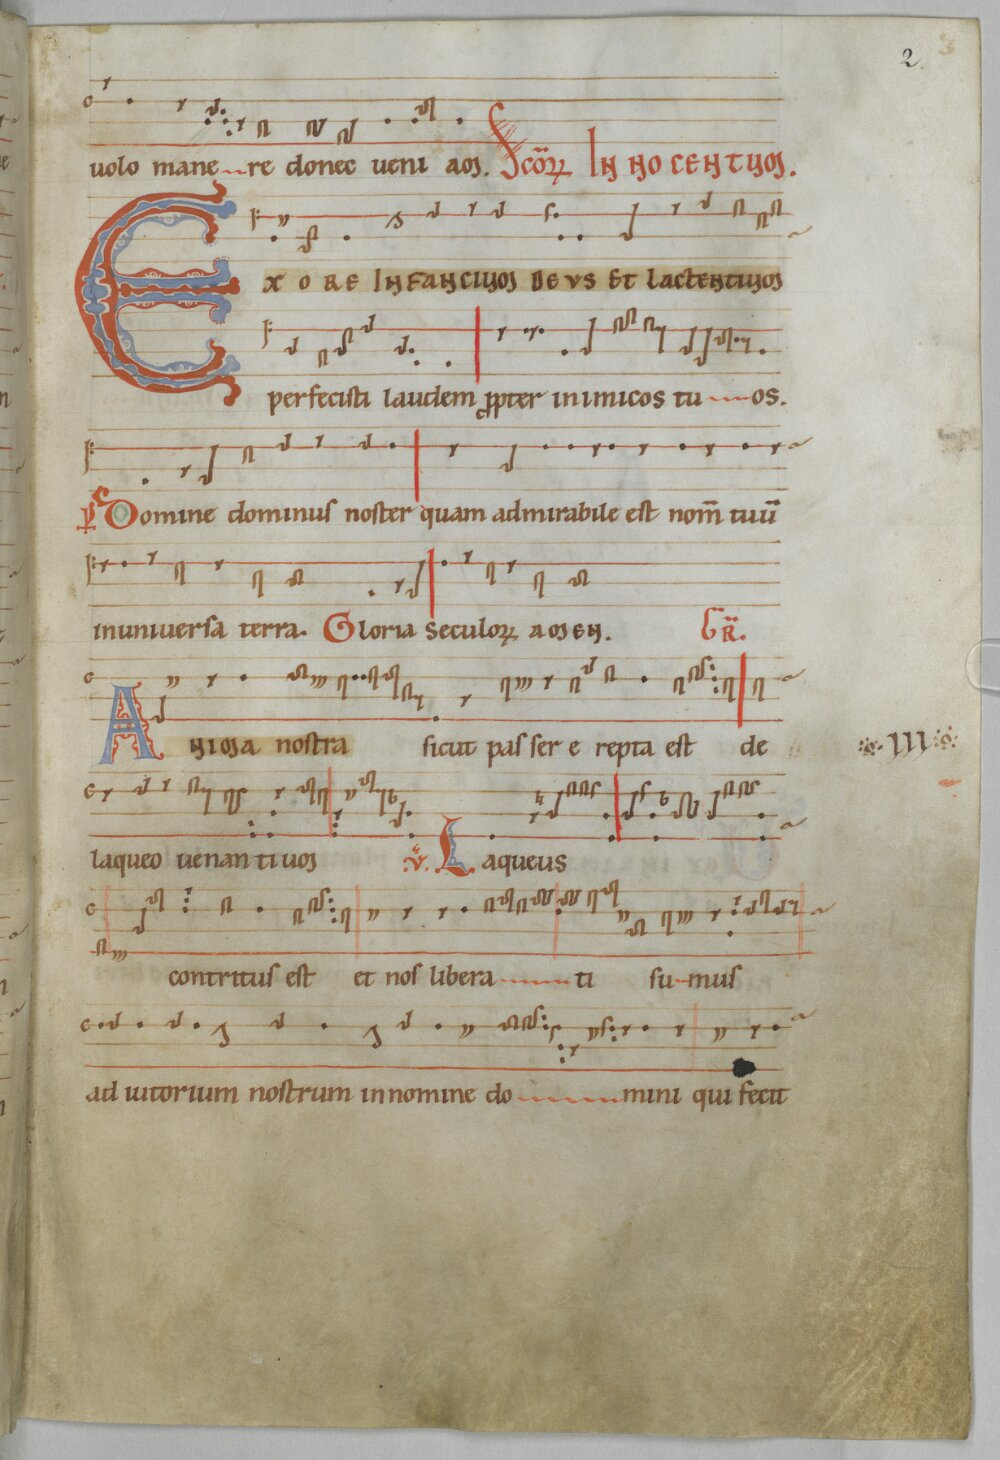 2 3
uolo mane re donec ueni am. Scōꝝ Innocentum.
Ex ore infancium deus et lactentium
perfecisti laudem ꝓpter inimicos tu os.
P̄s Domine dominus noster quam admirabile est nom̄ tuū
inuniuersa terra. Gloria seculoꝝ amen. Gr̄.
Anima nostra sicut passer e repta est de
III
laqueo uenantium V̄. Laqueus
contritus est et nos libera ti sumus
adiutorium nostrum innomine do mini qui fecit